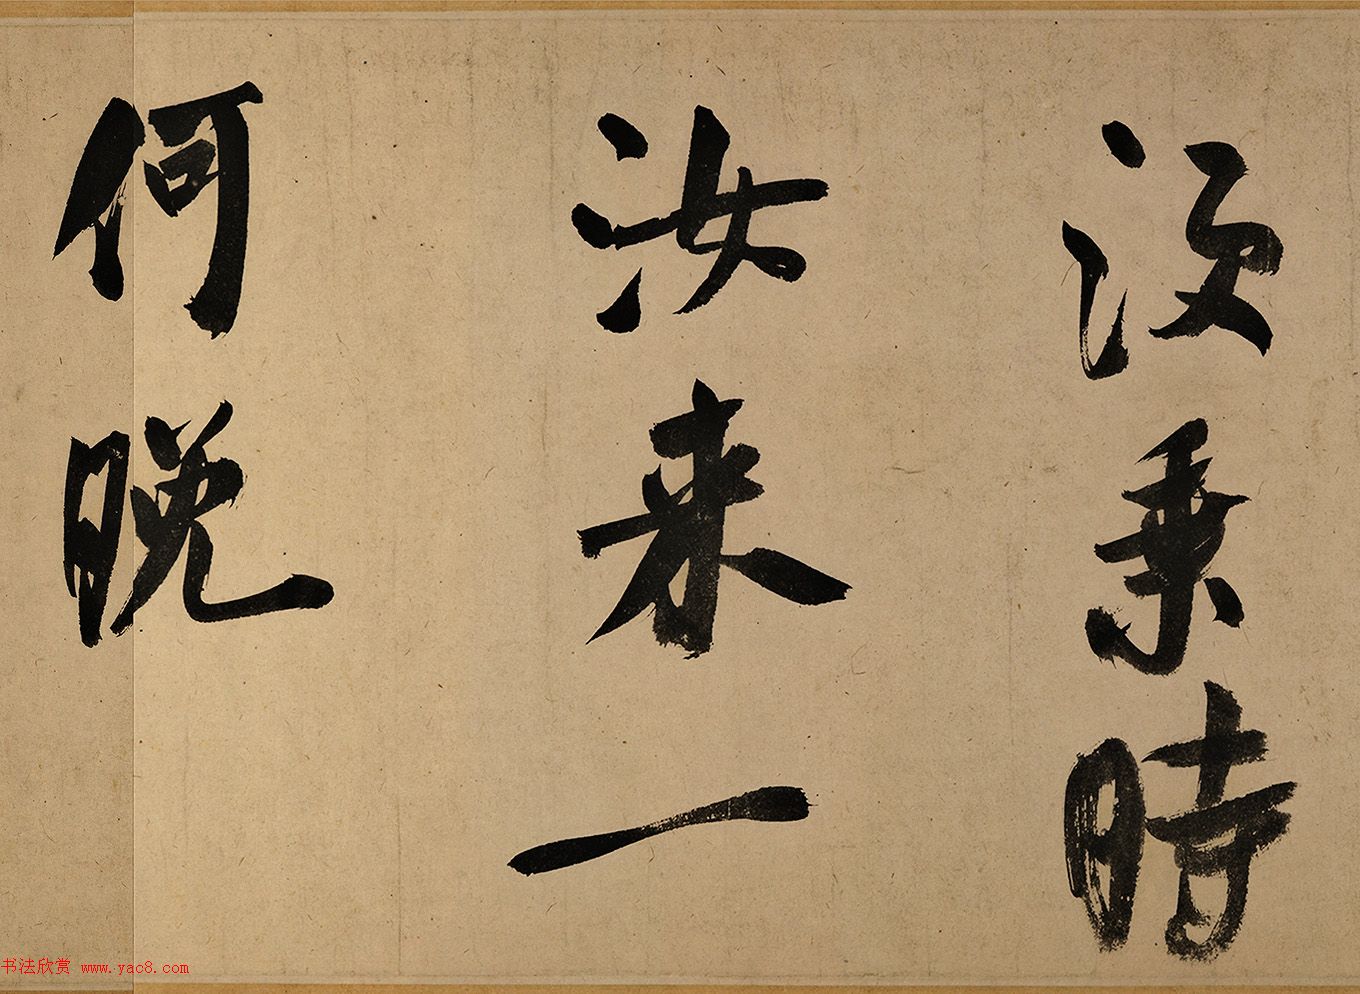 没乘時
汝来一
何晚
书法欣赏 www.yac8.com